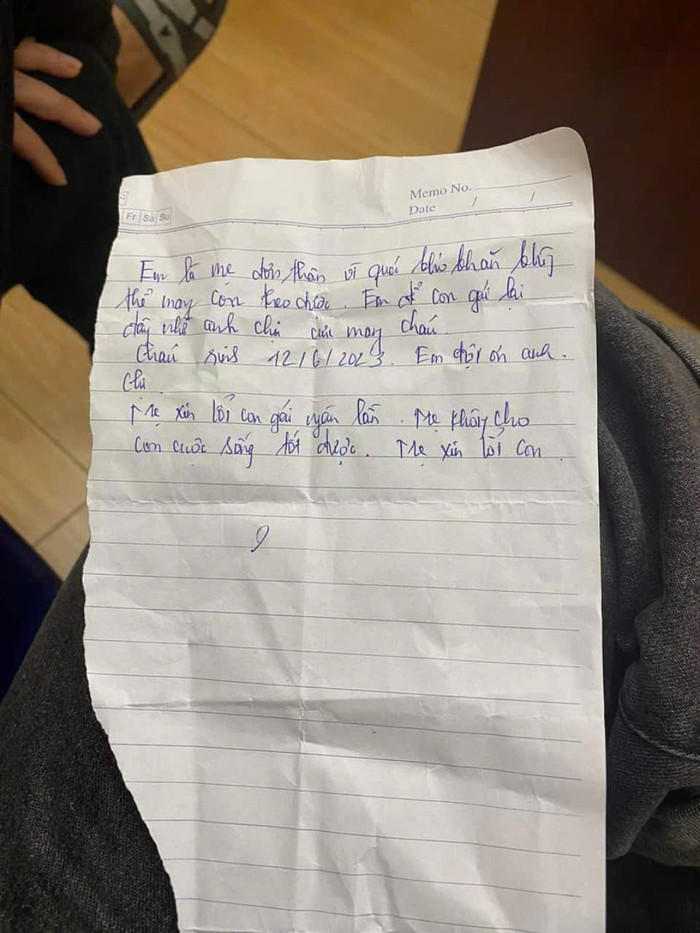 Memo No.
Date / /
Fr Sa Su
Em là mẹ đơn thân vì quá khó khăn
thể may con theo được. Em để con gái lại
đây nhờ anh chị cưu mang cháu
Cháu sinh 12/6/2023. Em đội ơn anh.
Chị
Mẹ xin lỗi con gái ngán lần. Mẹ không cho
con cuộc sống tốt được. Mẹ xin lỗi con.